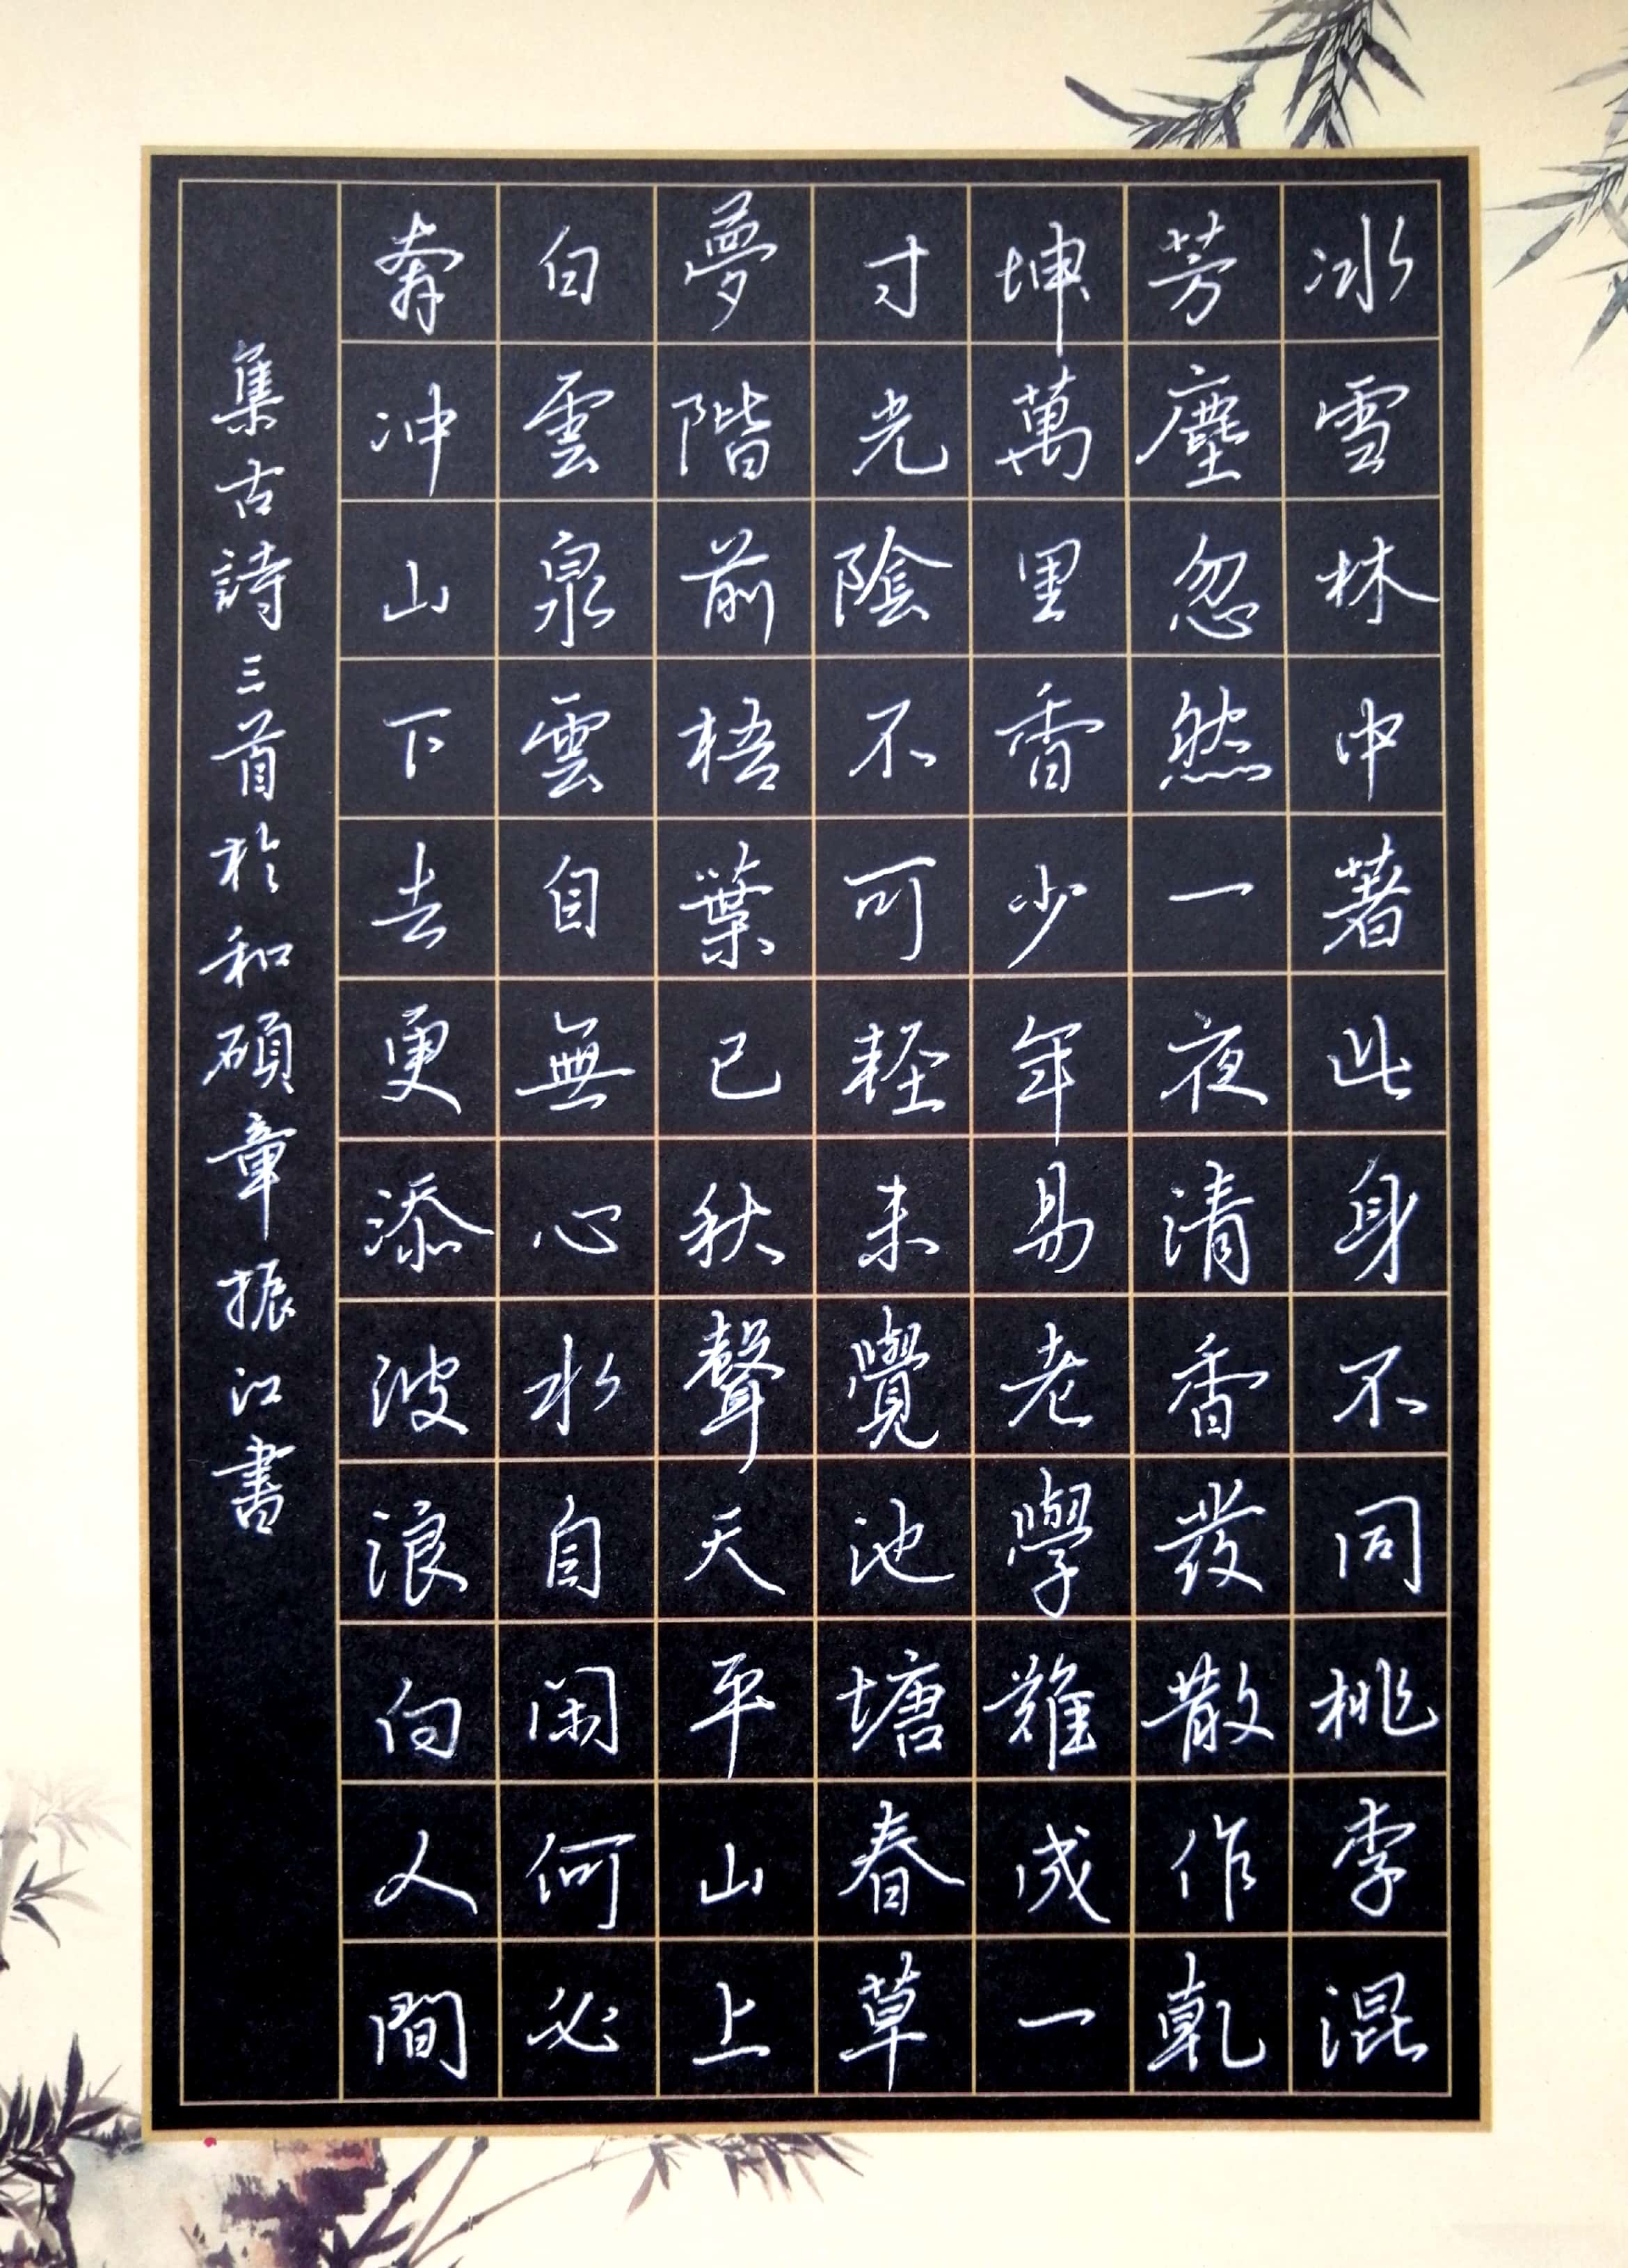 冰雪林中著此身不同桃李混
芳塵忽然一夜清香發散作乾
坤萬里香少年易老學難成一
寸光陰不可輕未覺池塘春草
夢階前梧葉已秋聲天平山上
白雲泉雲自無心水自閑何必
奔冲山下去更添波浪向人間
集古詩三首於和碩章振江書